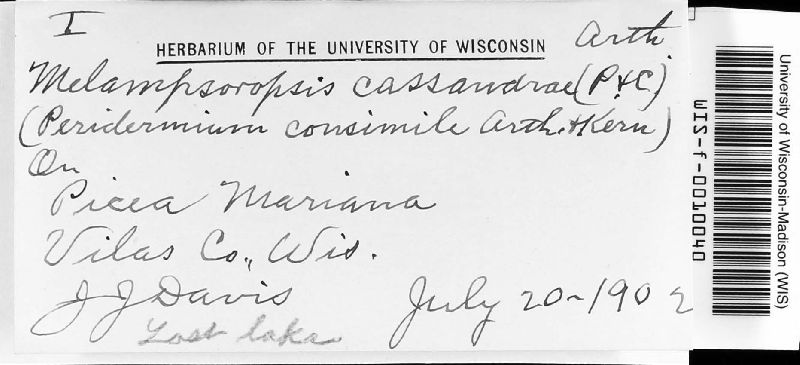 I
HERBARIUM OF THE UNIVERSITY OF WISCONSIN
Melampsoropsis cassandrae (P.&C) Arth
(Peridermium consimile Arth. & Kern)
On
Picea Mariana
Vilas Co., Wis.
J J Davis July 20-1902
Lost lake
University of Wisconsin-Madison (WIS)
WIS-f-0010040